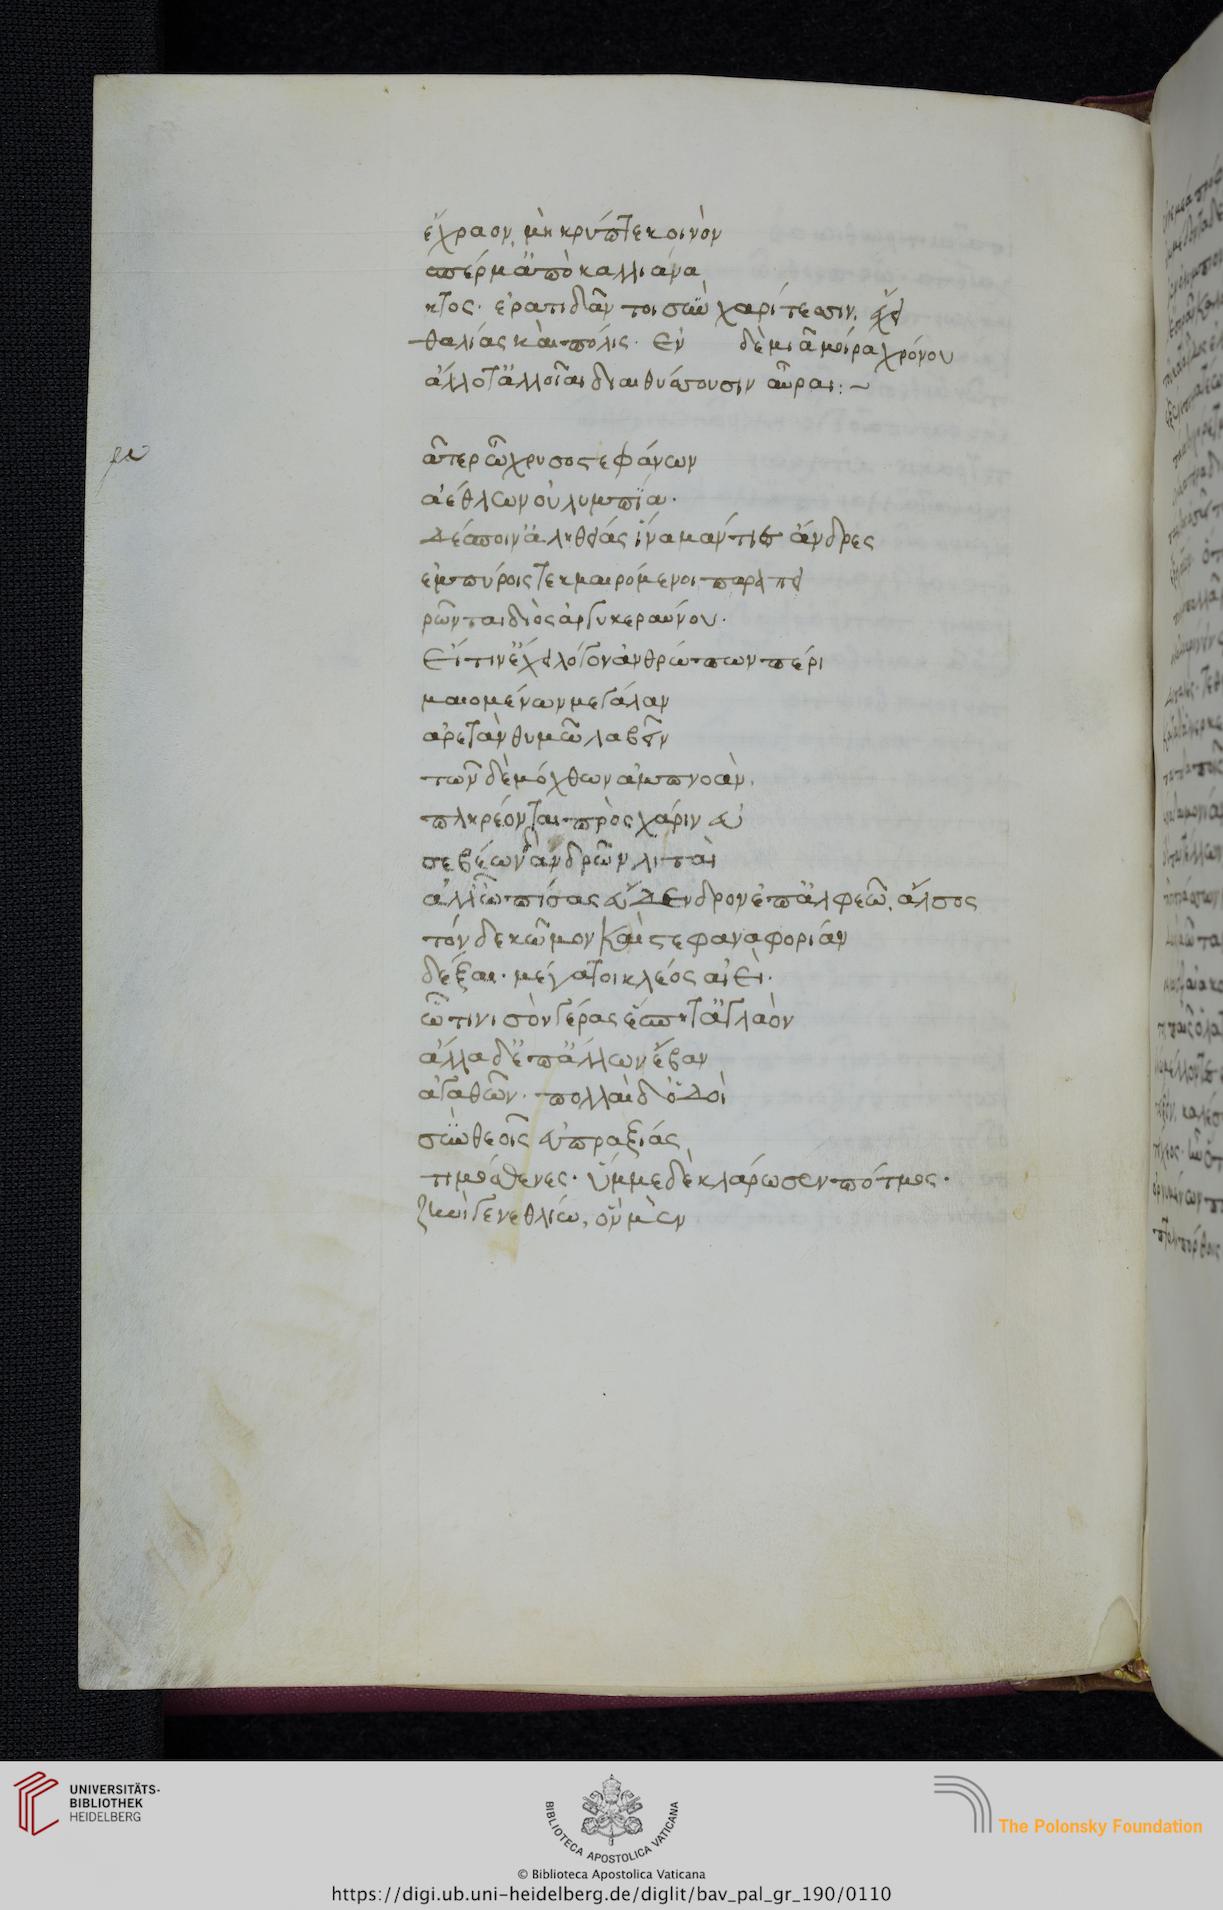 ἔχραον, μὴ κρύπτε κοινὸν
σπέρμ' ἀπὸ καλλιάνα
κτος· ἐρατιδᾶν τοι σὺν χαρίτεσσιν, ἔχει
θαλίας καὶ πόλις· ἐν δὲ μιᾶ μοίρα χρόνου
ἄλλοτ' ἀλλοῖαι διαιθύσσουσιν αὖραι:~
μᾶτερ ὦ χρυσοστεφάνων
ἀέθλων οὐλυμπία·
δέσποιν' ἀληθείας ἵνα μάντιες ἄνδρες
ἐμπύροις τεκμαιρόμενοι παραπει
ρῶνται διὸς ἀργικεραύνου·
εἴ τιν' ἔχει λόγον ἀνθρώπων πέρι
μαιομένων μεγάλαν
ἀρετὰν θυμῶ λαβεῖν
τῶν δὲ μόχθων ἀμπνοάν,
πληρέονται πρὸς χάριν εὐ
σεβέων ἀνδρῶν λιταί
ἀλλ' ὦ πίσας εὔδενδρον ἐπ' ἀλφεῶ, ἄλσος
τόνδε κῶμον καὶ στεφαναφορίαν
δέξαι· μέγα τοι κλέος αἰεί·
ὧτινι σὸν γέρας ἕσπητ' ἀγλαόν
ἄλλα δ' ἐπ' ἄλλων ἔβαν
ἀγαθῶν· πολλαὶ δ' ὁδοὶ
σὺν θεοῖς εὐπραξίας
τιμόσθενες· ὔμμε δὲ κλάρωσεν πότμος·
ζηνὶ γενεθλίω, ὃν μὲν
UNIVERSITÄTS-
BIBLIOTHEK
HEIDELBERG
BIBLIOTECA APOSTOLICA VATICANA
The Polonsky Foundation
© Biblioteca Apostolica Vaticana
https://digi.ub.uni-heidelberg.de/diglit/bav_pal_gr_190/0110